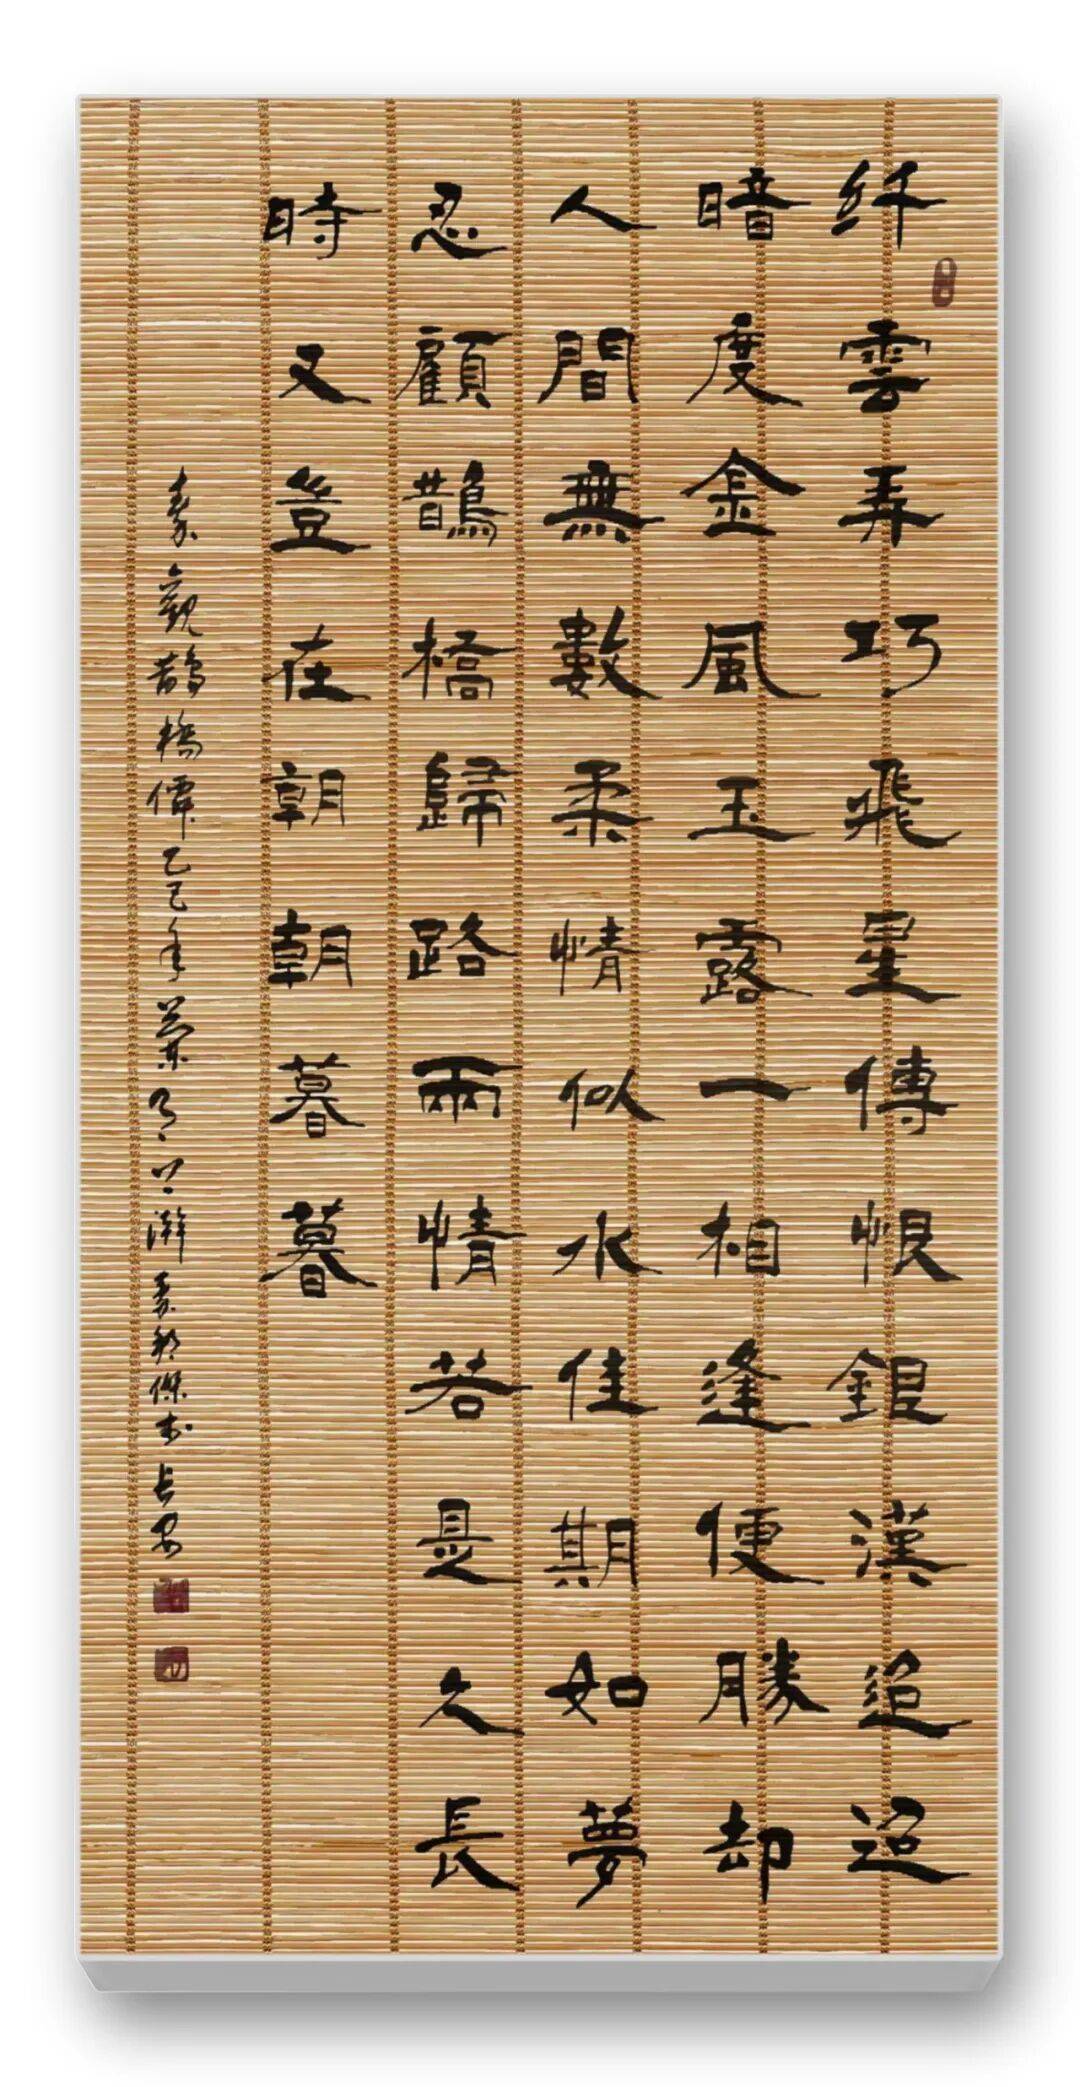 纤雲弄巧飛星傳恨銀漢迢迢
暗度金風玉露一相逢便勝却
人間無數柔情似水佳期如夢
忍顧鵲橋歸路兩情若是久長
時又豈在朝朝暮暮
秦觀鵲橋僊乙巳年月上澣傑书长安